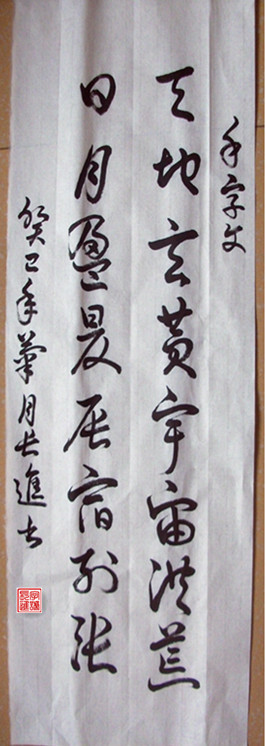 千字文
天地玄黄宇宙洪荒
日月盈昃辰宿列张
癸巳年菊月长進书